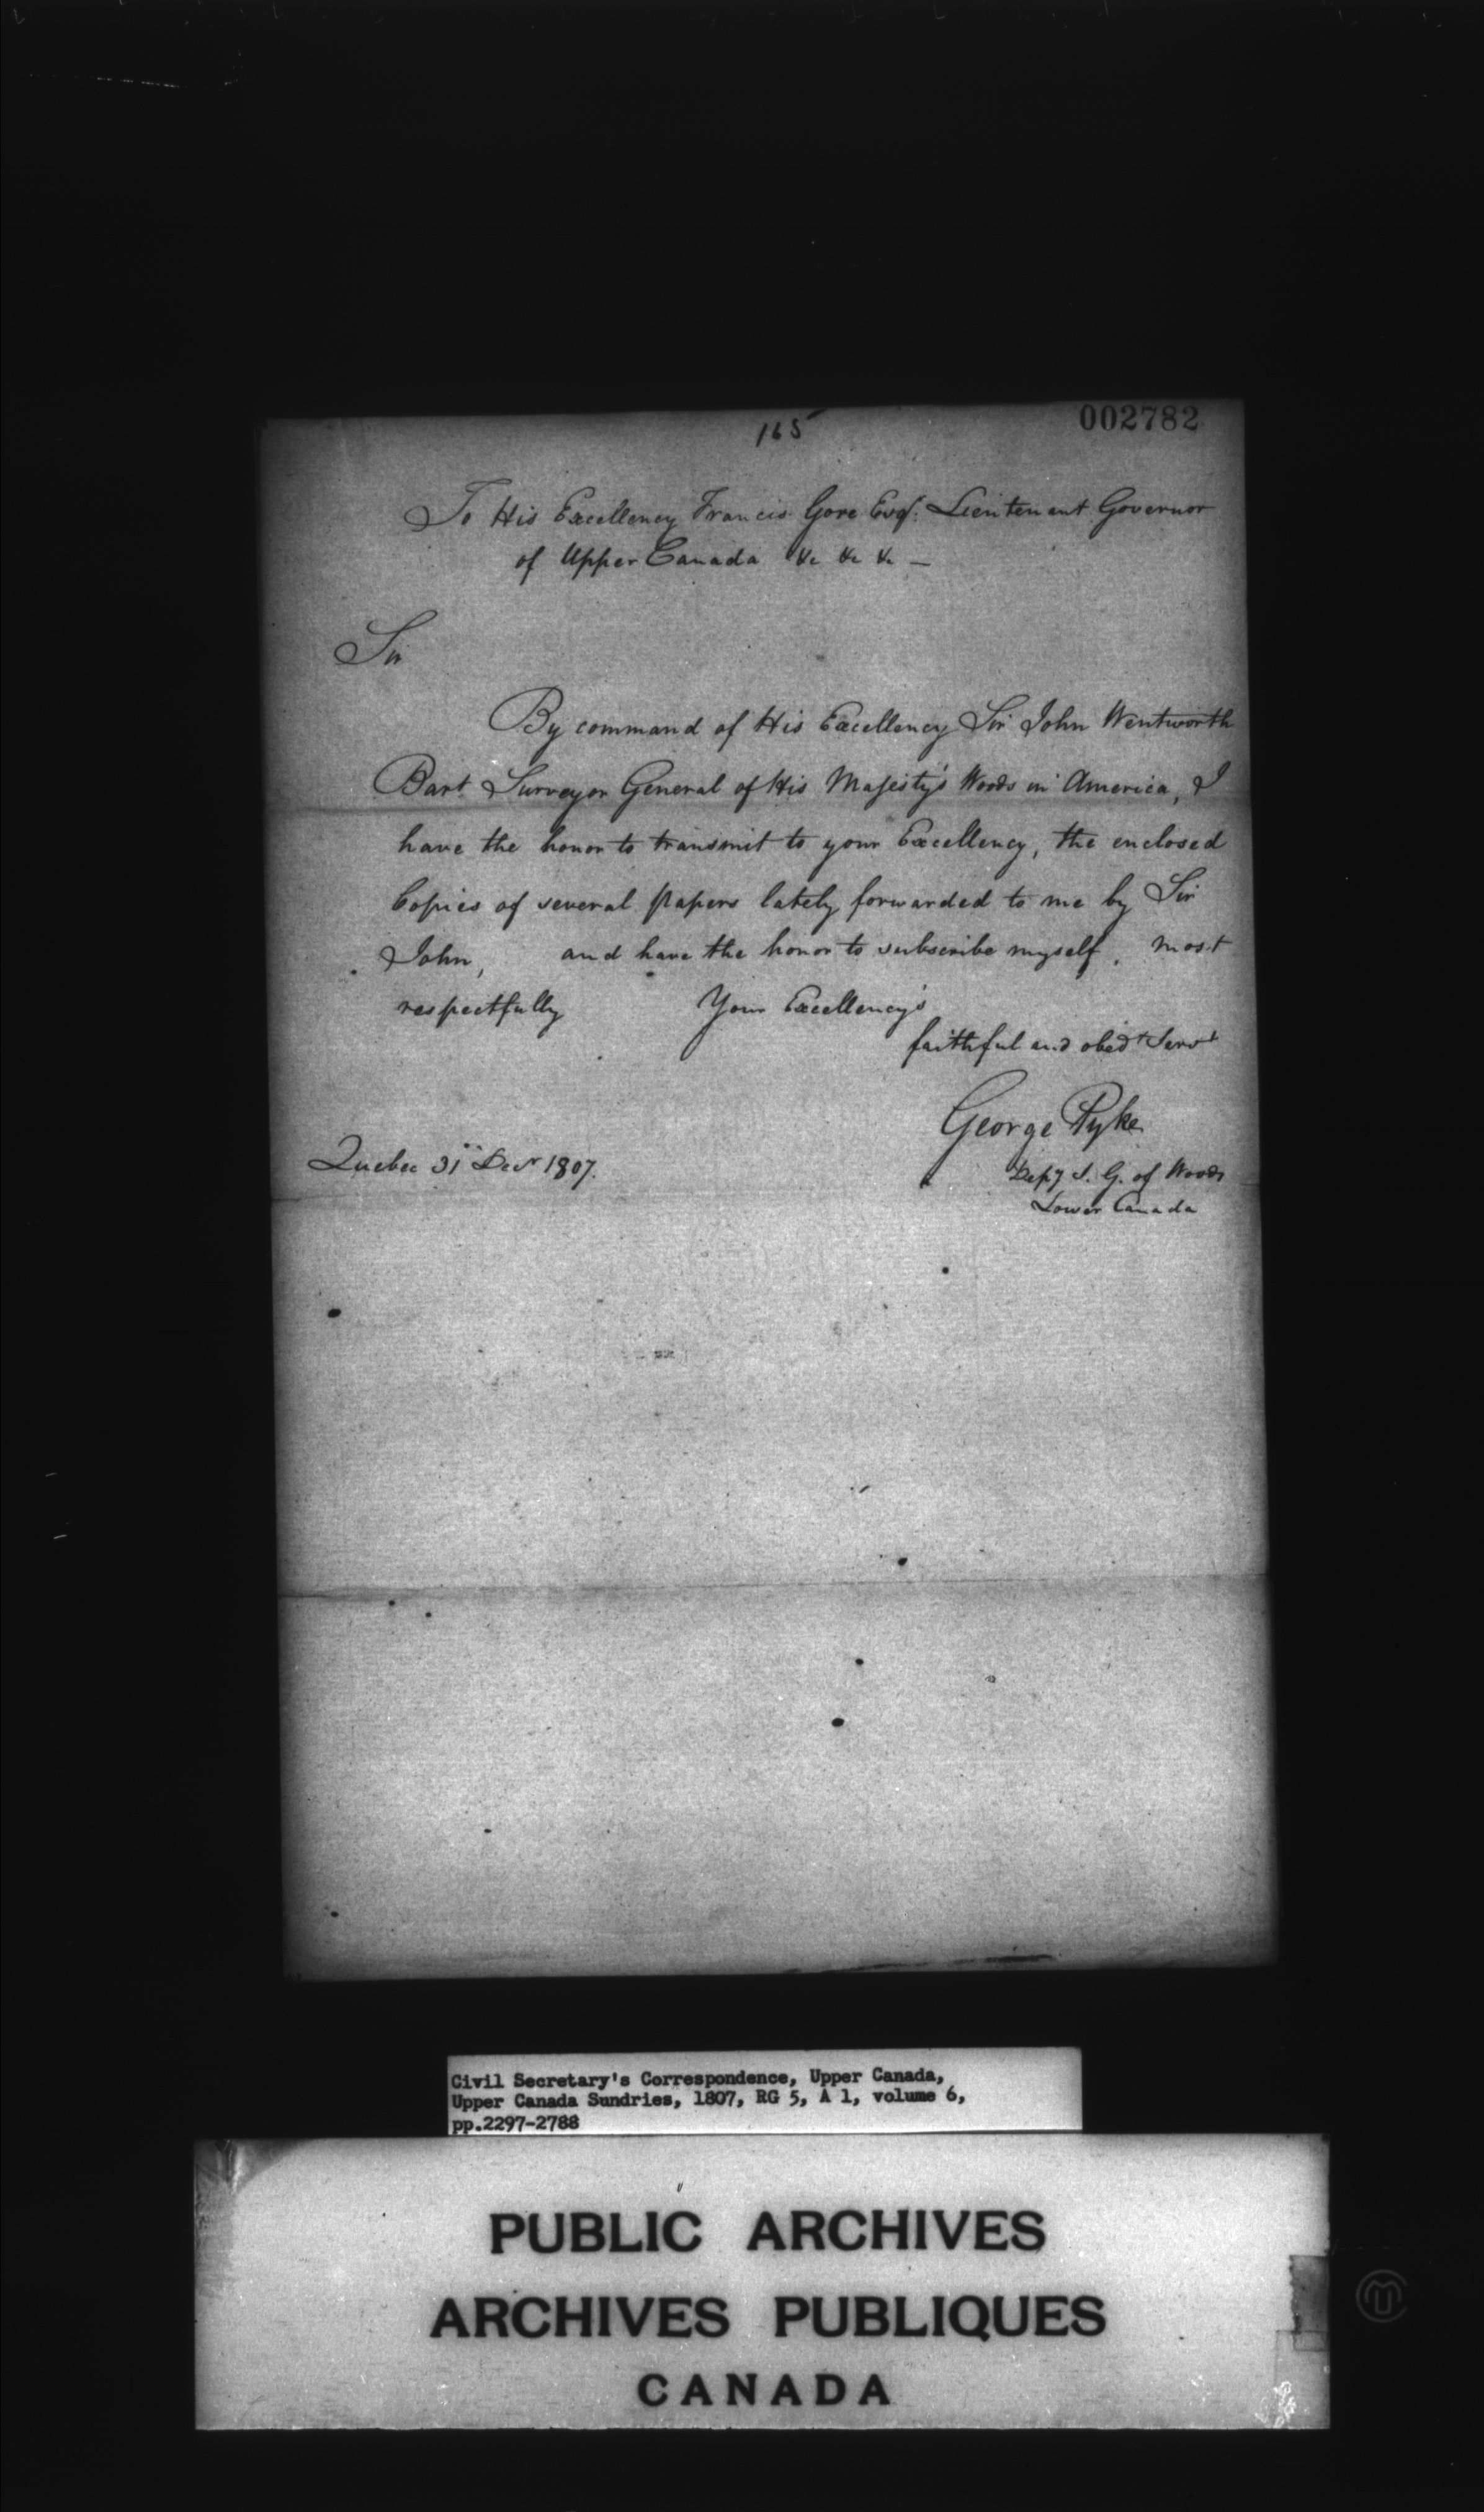 165
002782
To His Excellency Francis Gore Esqr. Lieutenant Governor
of Upper Canada &c &c &c —
Sir
By command of His Excellency Sir John Wentworth
Bart Surveyor General of His Majesty's Woods in America, I
have the honor to transmit to your Excellency, the enclosed
Copies of several papers lately forwarded to me by Sir
John, and have the honor to subscribe myself, most
respectfully Your Excellency's
faithful and obedt Servt
George Pyke
Quebec 31 Decr 1807.
Depy S. G. of Woods
Lower Canada
Civil Secretary's Correspondence, Upper Canada,
Upper Canada Sundries, 1807, RG 5, A 1, volume 6,
pp.2297-2788
PUBLIC ARCHIVES
ARCHIVES PUBLIQUES
CANADA